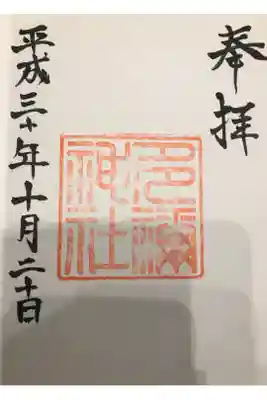 奉拝
神社
平成三十年十月二十日